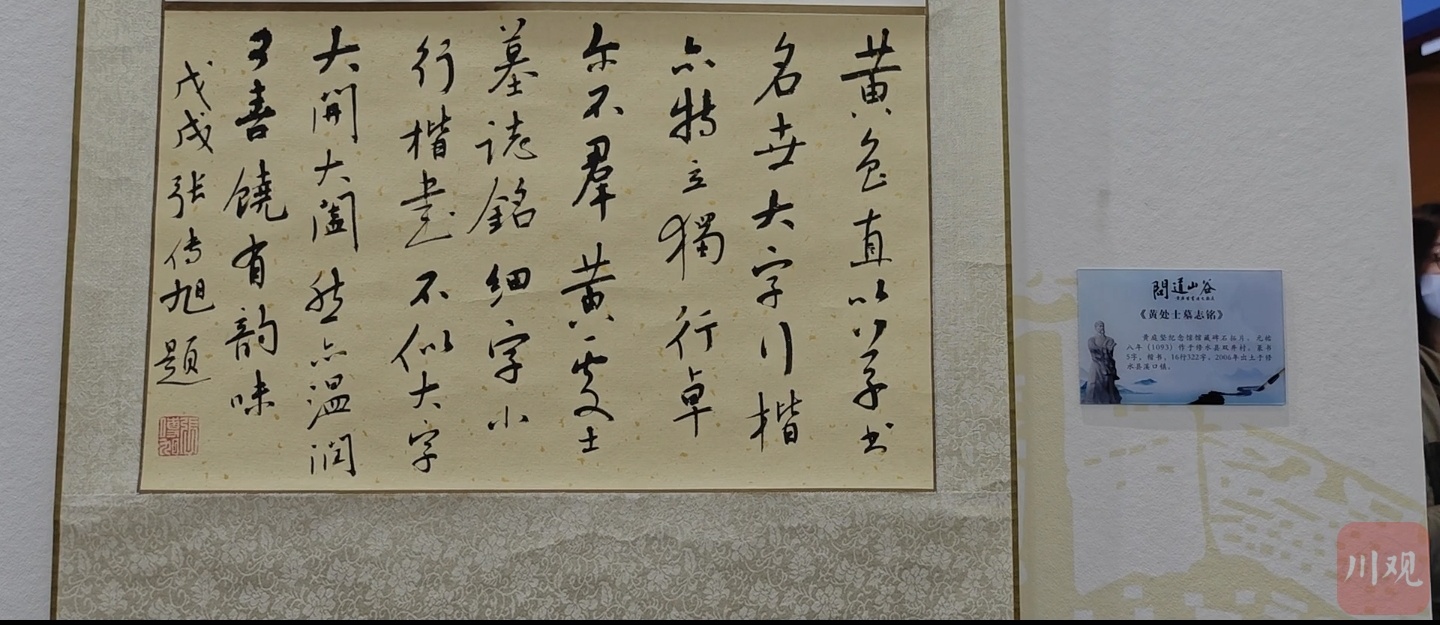 黄鲁直以草书
名世大字行楷
亦特立獨行卓
尔不羣黄處士
墓誌銘細字小
行楷書不似大字
大開大闔然亦温潤
可喜饒有韵味
戊戌張传旭題
問道山谷
《黄处士墓志铭》
黄庭坚纪念馆馆藏碑石拓片。元祐
八年（1093）作于修水县双井村，篆书
5字，楷书，16行322字。2006年出土于修
水县溪口镇。
川观